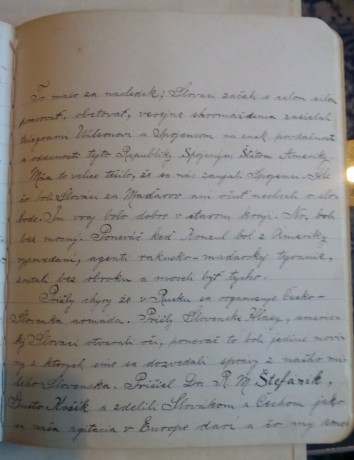 To malo za následok; Slovaci začali s celou silou
pracovať, obetovať, verejné shromaždenia zasielali
telegrami Wilsonovi a Spojencom na znak povďačnosti
a oddanosti tejto Republiky Spojeným Štátom Ameriky.
Mňa to velice tešilo, že sa nás zaujali Spojenci. Ale
čo boli Slovaci za Maďarov ani čuť nechceli o slo-
bode. Im vraj bolo dobre v starom kraji. No, boli
bez mocný. Poneváč keď Konzul bol z Ameriky
vypovedaní, agenti rakusko-madarský tyranie,
zostali bez obroku a museli byť ticho.
Prišly chyry že v Rusku sa organizuje Česko-
Slovenka armada. Prišly Slovenské Hlasy, americ-
ký Slovaci otvarali oči, poneváč to boli jediné novi-
ny z ktorých sme sa dozvedali spravy z našho mi-
lého Slovenska. Prišiel Dr. R. M. Štefanik,
Gusto Košík a zdelili Slovákom a Čechom jako
sa naša agitacia v Europe darí a čo my ame